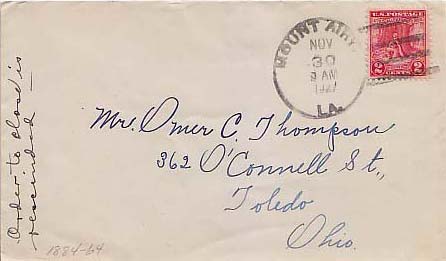 MOUNT AIRY,
NOV
30
9 AM
1927
LA.
U.S. POSTAGE
2 CENTS 2
Mr. Omer C. Thompson
362 O'Connell St.,
Toledo
Ohio.
Order to close is
rescinded
1884-64